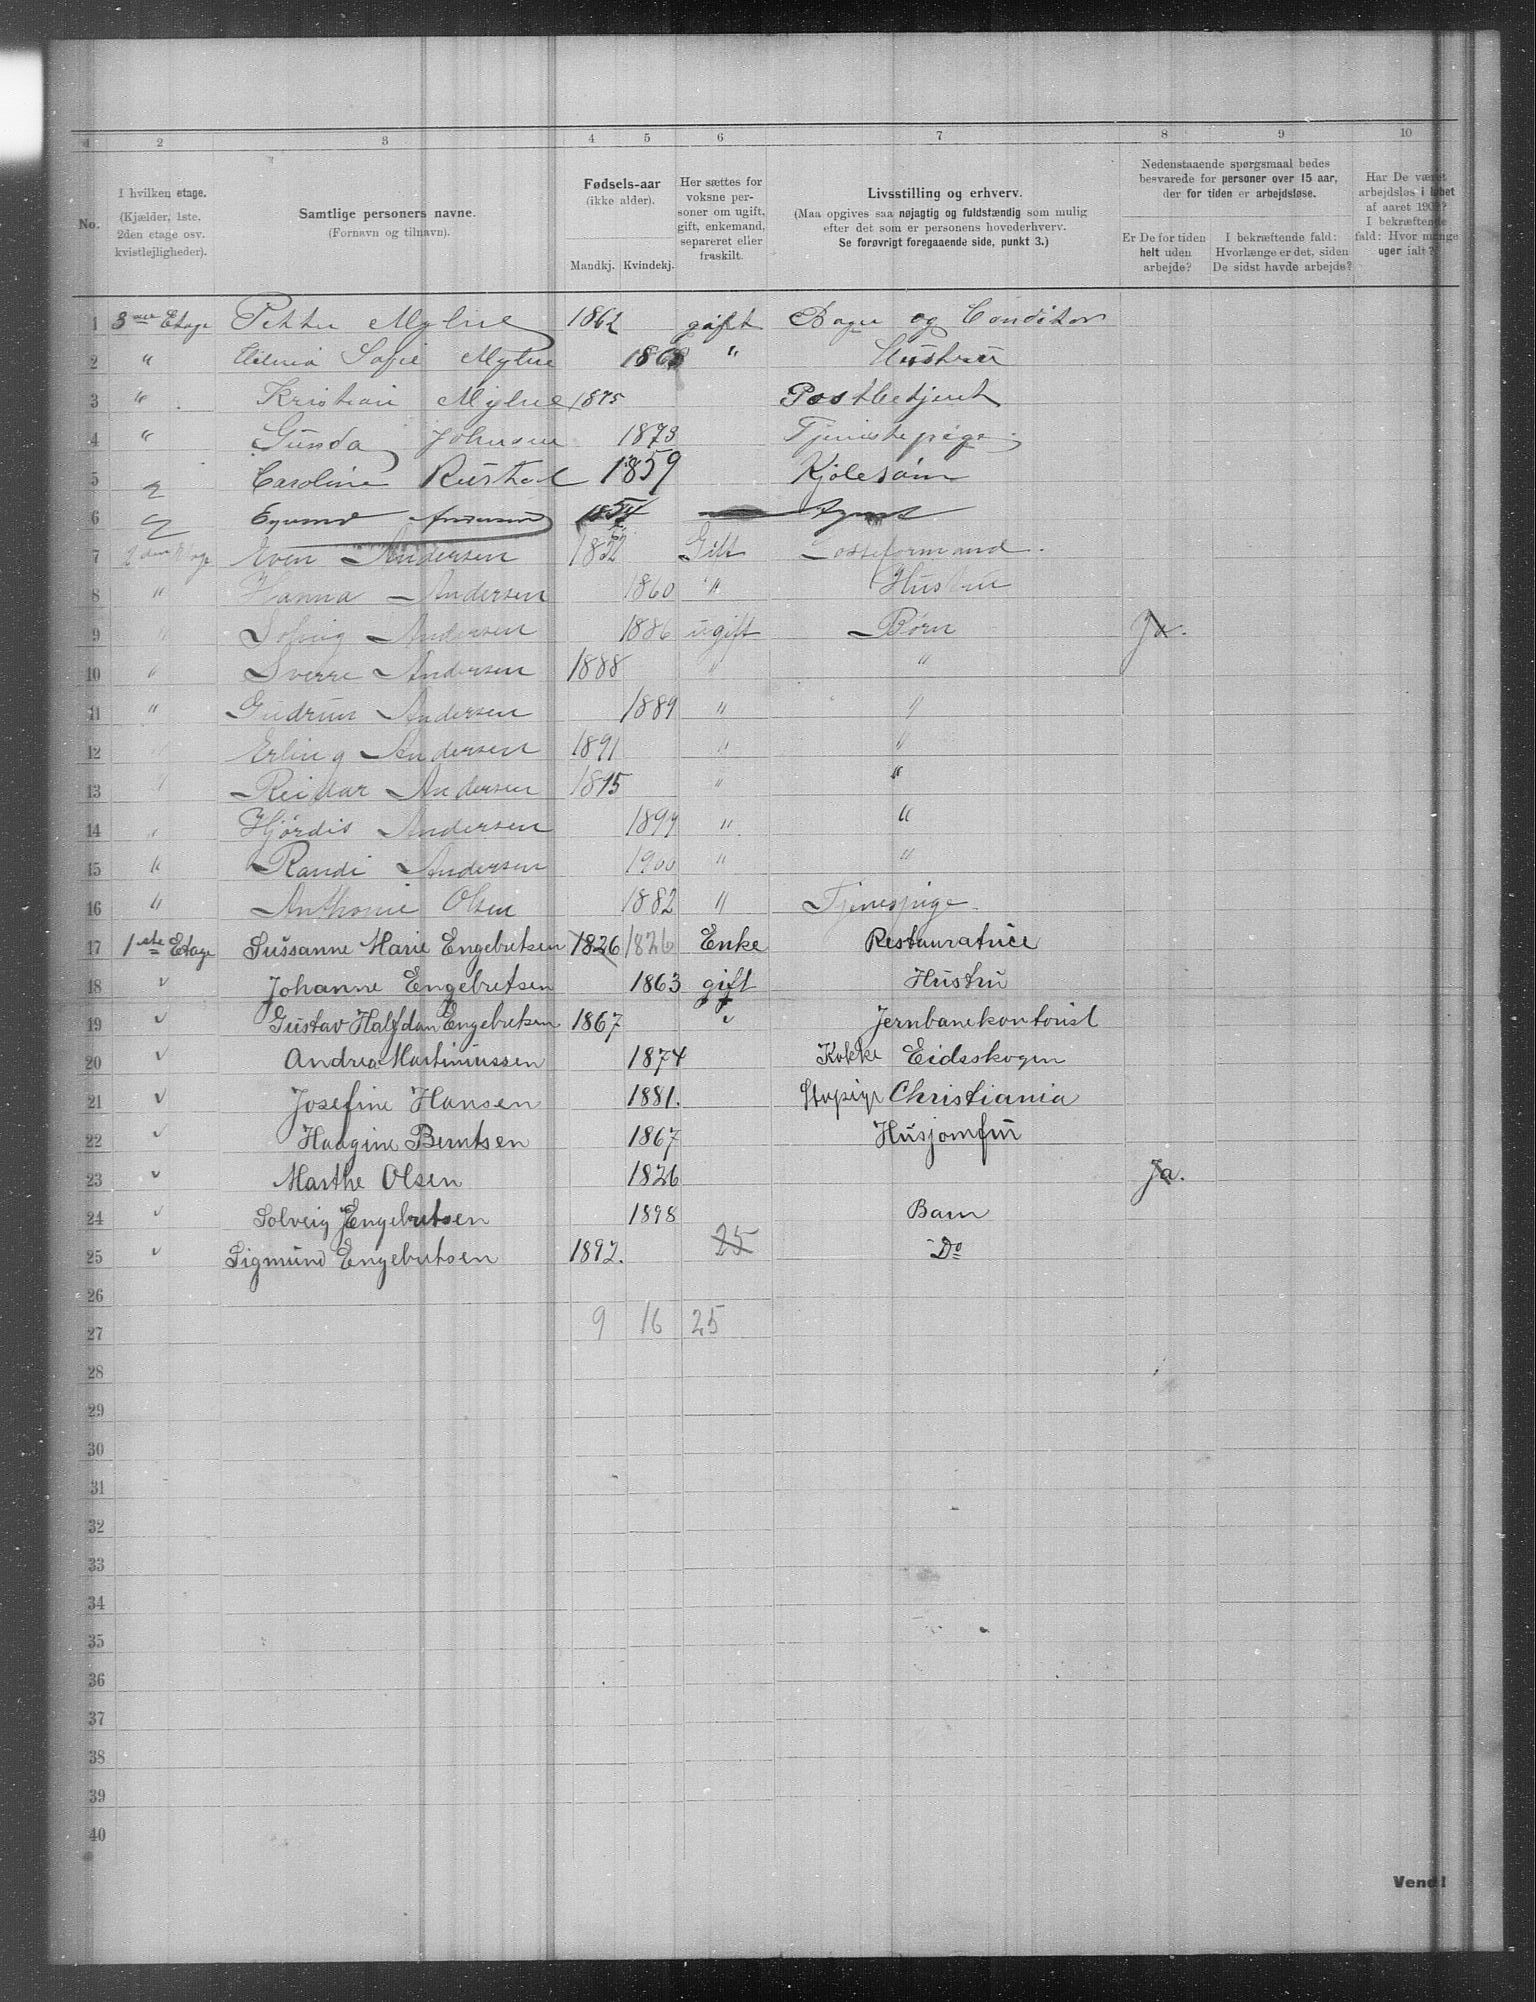 1 2 3 4 5 6 7 8 9 10
No.
I hvilken etage.
(Kjælder, 1ste,
2den etage osv.
kvistlejligheder).
Samtlige personers navne.
(Fornavn og tilnavn).
Fødsels-aar
(ikke alder).
Mandkj. Kvindekj.
Her sættes for
voksne per-
soner om ugift,
gift, enkemand,
separeret eller
fraskilt.
Livsstilling og erhverv.
(Maa opgives saa nøjagtig og fuldstændig som mulig
efter det som er personens hovederhverv.
Se forøvrigt foregaaende side, punkt 3.)
Nedenstaaende spørgsmaal bedes
besvarede for personer over 15 aar,
der for tiden er arbejdsløse.
Er De for tiden
helt uden
arbejde?
I bekræftende fald:
Hvorlænge er det, siden
De sidst havde arbejde?
Har De været
arbejdsløs i løbet
af aaret 1902?
I bekræftende
fald: Hvor mange
uger ialt?
1 3 Etage Petter Myhre 1862 gift Bager og Conditor
2 " Sofie Myhre 1868 " Hustru
3 " Kristian Myhre 1875 Postbetjent
4 " Gunda Johnsen 1873 Tjenestepige
5 " Caroline Rustad 1859 Kjolesøm
6 " Andersen Agent
7 2den Etage Even Andersen 1852 Gift Losseformand.
8 " Hanna Andersen 1860 " Hustru
9 " Solvig Andersen 1886 ugift Børn Ja.
10 " Sverre Andersen 1888 " "
11 " Gudrun Andersen 1889 " "
12 " Erling Andersen 1891 " "
13 " Reidar Andersen 1895 " "
14 " Hjørdis Andersen 1897 " "
15 " Randi Andersen 1900 " "
16 " Anthonie Olsen 1882 " Tjenespige
17 1ste Etage Sussanne Marie Engebretsen 1826 1826 Enke Restauratrice
18 " Johanne Engebretsen 1863 gift Hustru
19 " Gustav Halfdan Engebretsen 1867 " Jernbanekontorist
20 " Andrea Martiniussen 1874 Kokke Eidsskogen
21 " Josefine Hansen 1881. Stupige Christiania
22 " Haagine Berntsen 1867 Husjomfru
23 " Marthe Olsen 1826 Ja.
24 " Solveig Engebretsen 1898 Barn
25 " Sigmund Engebretsen 1892. 25 Do
26
27 9 16 25
28
29
30
31
32
33
34
35
36
37
38
39
40
Vend!